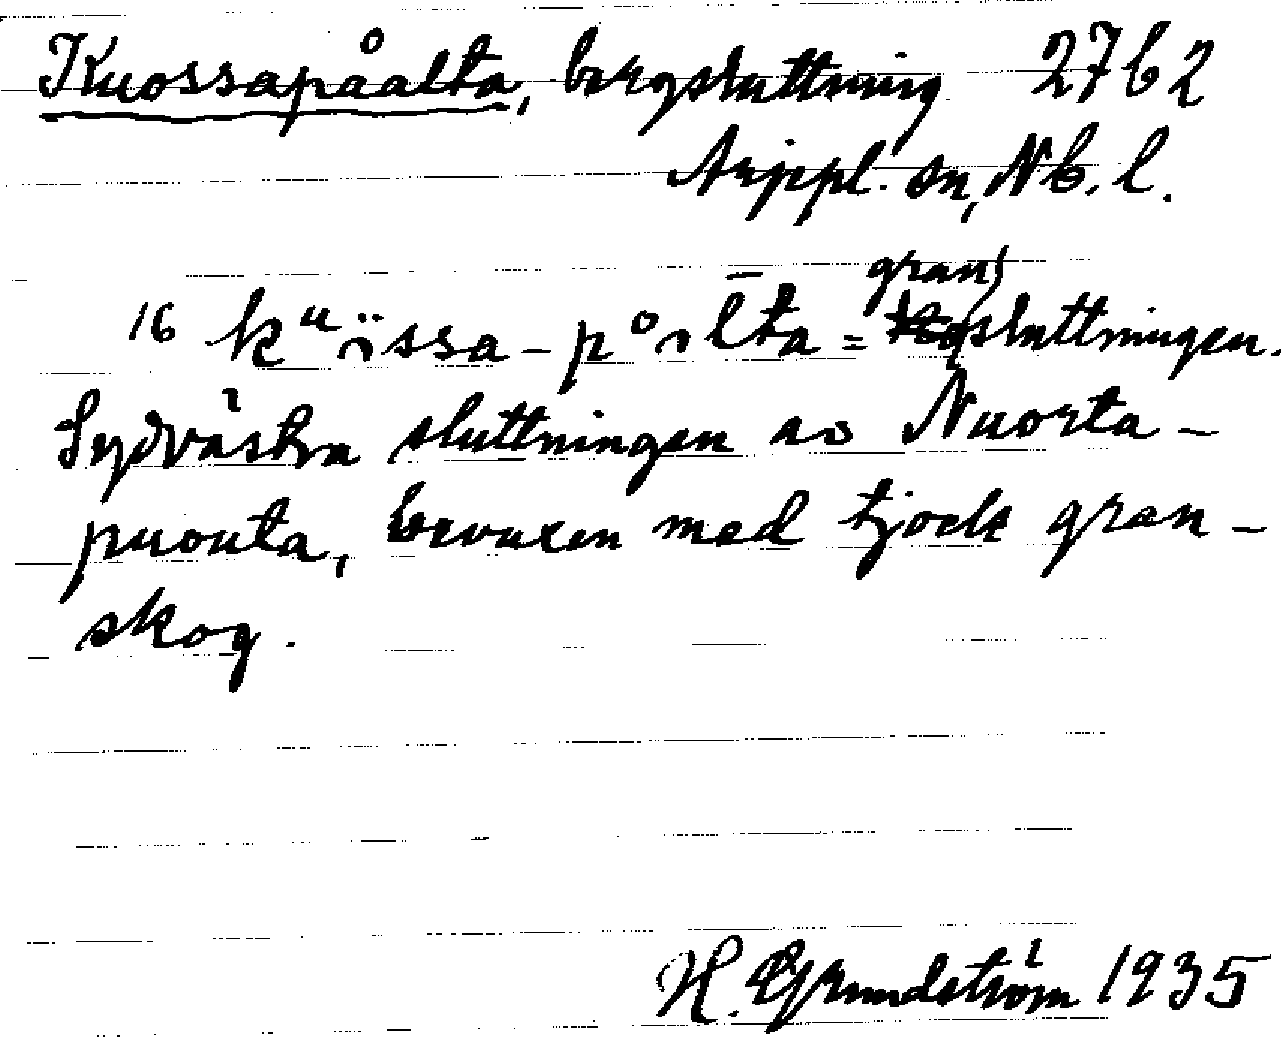 Kuossapåalta, bergsluttning 2762
Arjeppl. sn, Nb. l.
gran
16 = sluttningen.
Sydvästra sluttningen av Nuorta-
puouta, bevuxen med tjock gran-
skog.
H. Grundström 1935